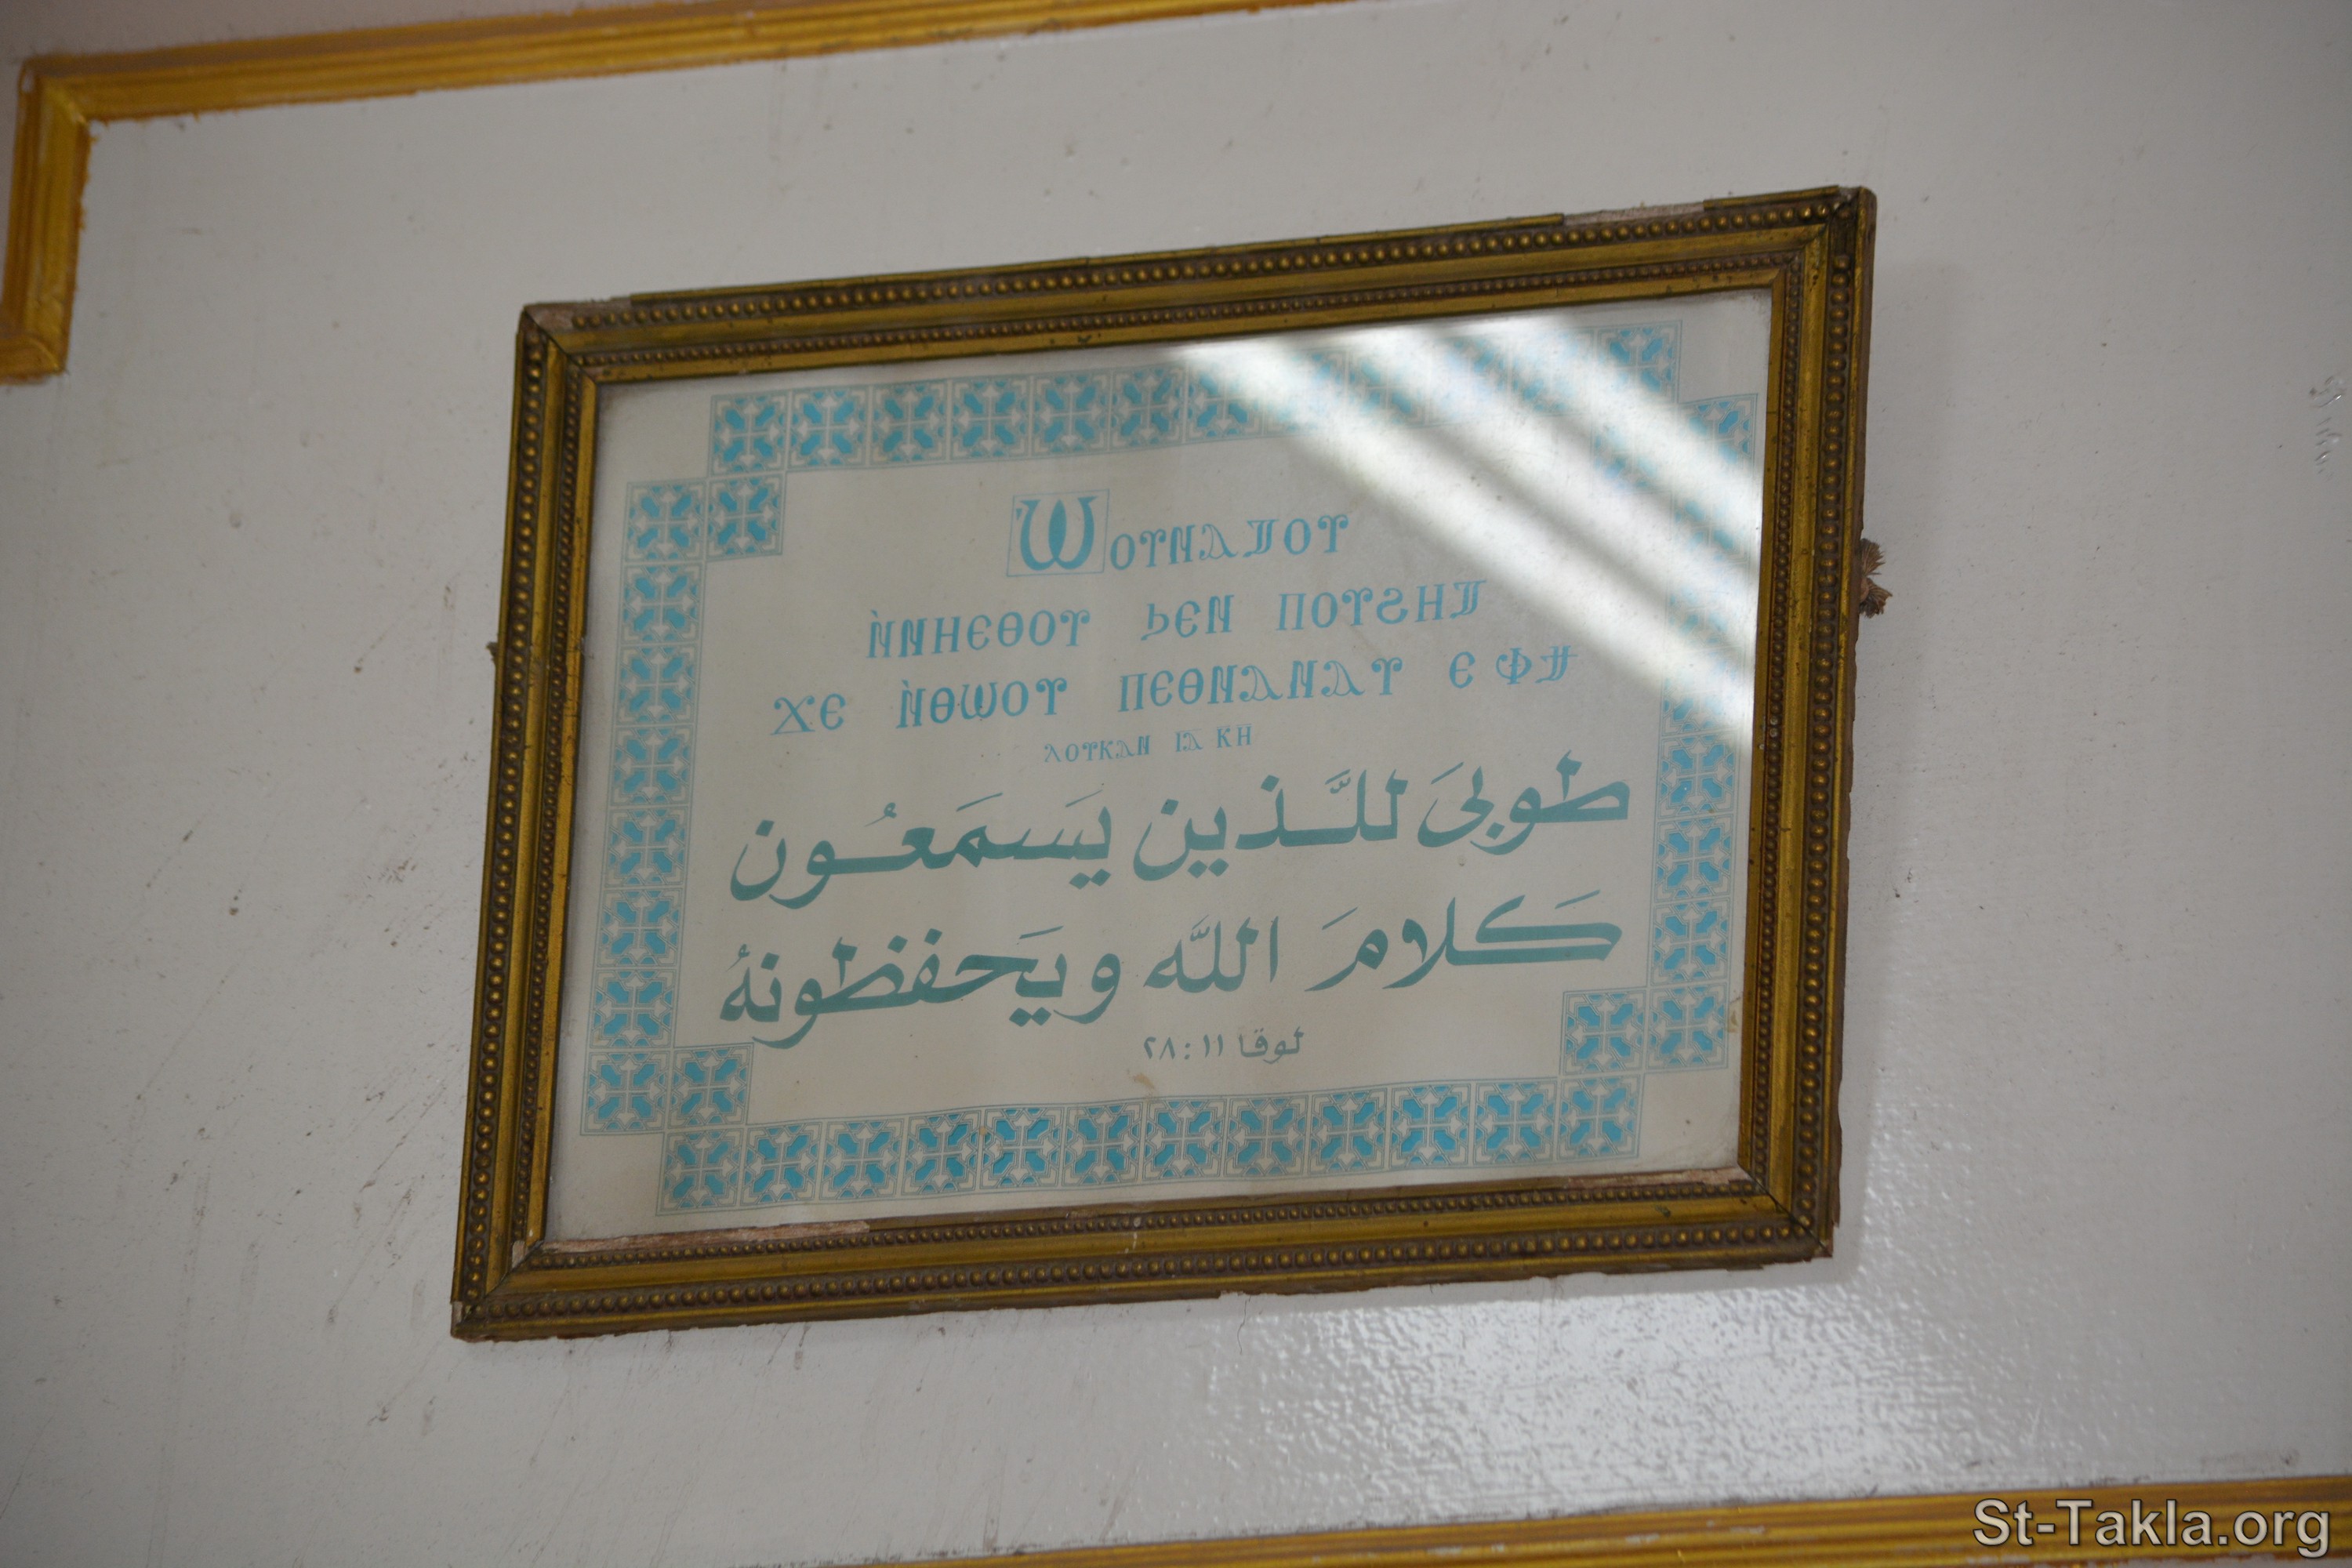 Ⲱⲟⲩⲛⲁⲧⲟⲩ
ⲛ̀ⲛⲏⲉⲑⲟⲩ ϧⲉⲛ ⲡⲟⲩϩⲏⲧ
ϫⲉ ⲛ̀ⲑⲱⲟⲩ ⲡⲉⲑⲛⲁⲛⲁⲩ ⲉ ⲫϯ
ⲗⲟⲩⲕⲁⲛ ⲓⲁ ⲕⲏ
طوبىَ للَّذين يَسمَعُون
كَلامَ اللَّه ويَحفظونهُ
لوقا ١١ : ٢٨
St-Takla.org